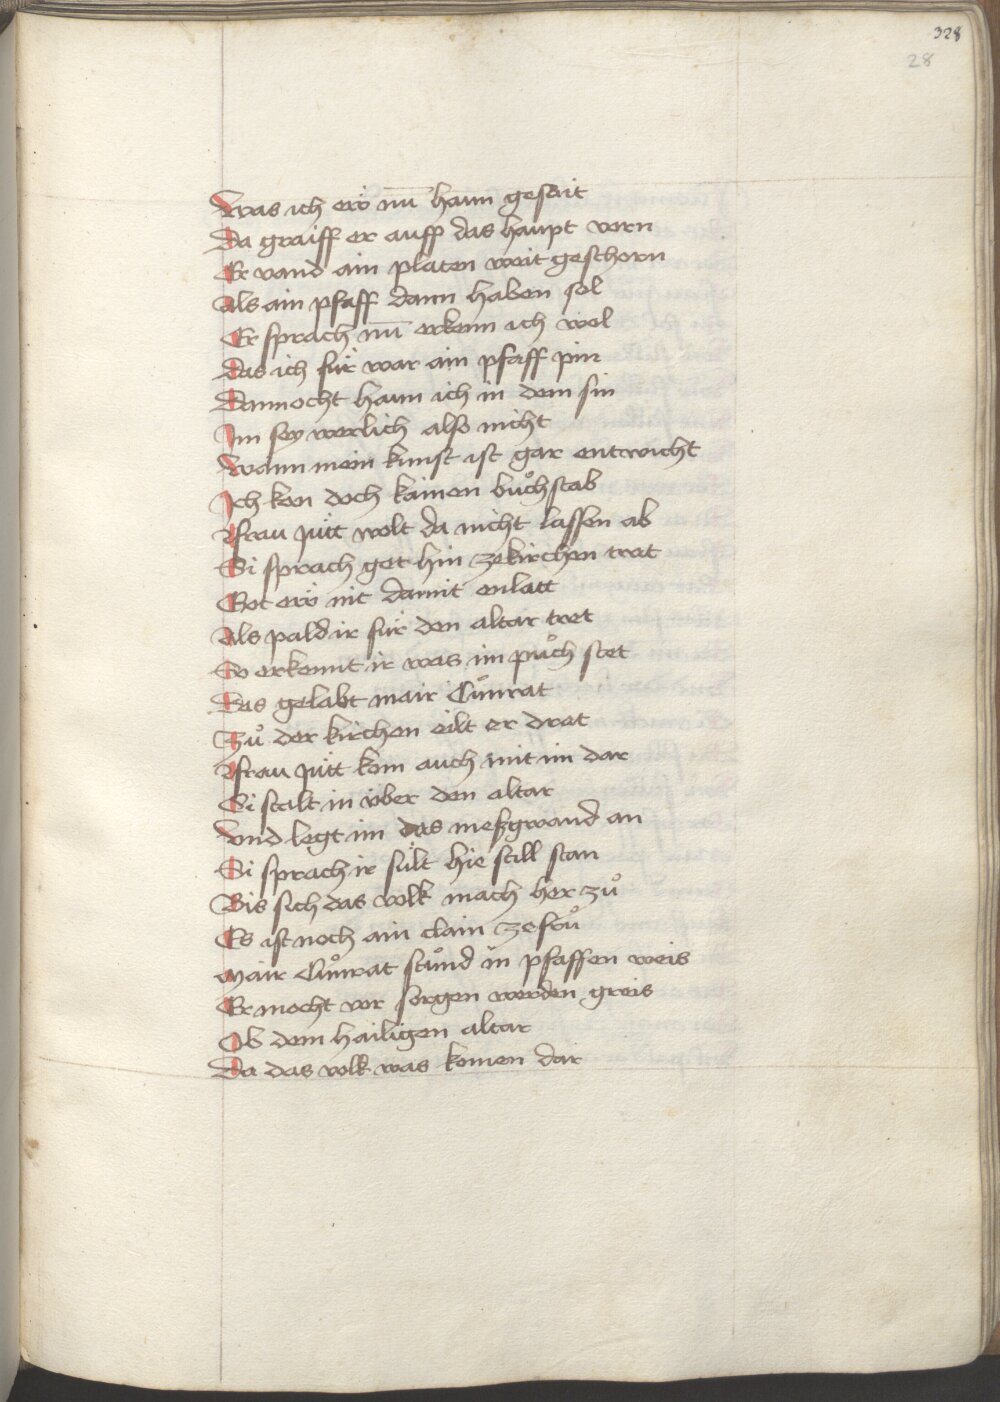 328
28
Was ich eẅ nū hann gesait
Da graiff er auff das haupt vorn
Er vand ain platen weit geschorn
Als ain pfaff dann haben sol
Er sprach nū erkenn ich wol
Das ich für war ain pfaff pin
Dannocht hann ich in dem sin
Im sey werlich also nicht
Wann mein kunst ist gar entwicht
Ich kon doch kainen bůchstab
Fraw Jütt wolt da nicht lassen ab
Si sprach get hin zekirchen trat
Got eẅ nit damit enlatt
Als pald ir für den altar tret
So erkennt ir was im půch stet
Das gelabt mair Cůnrat
Zů der kirchen eilt er drat
Fraw Jütt kom auch mit im dar
Si stalt in über den altar
Vnd legt im das meßgwand an
Si sprach ir sült hie still stan
Bis sich das volk mach her zů
Es ist noch ain clain ze frů
Mair Cůnrat stůnd in pfaffen weis
Er mocht vor sorgen werden greis
Ob dem hailigen altar
Da das volk was komen dar